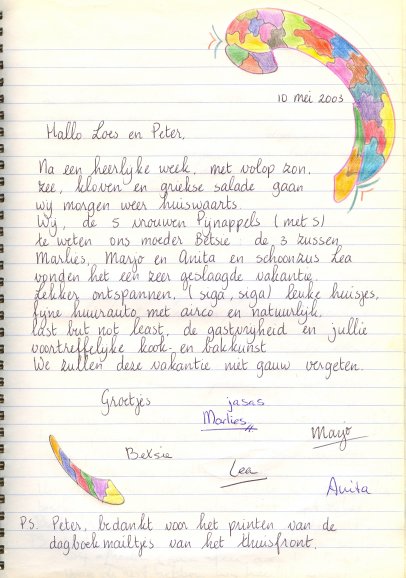 10 mei 2003
Hallo Loes en Peter,
Na een heerlijke week, met volop zon,
zee, kloven en griekse salade gaan
wij morgen weer huiswaarts.
Wij, de 5 vrouwen Pijnappels (met s)
te weten ons moeder Betsie: de 3 zussen
Marlies, Marjo en Anita en schoonzus Lea
vonden het een zeer geslaagde vakantie.
Lekker ontspannen, (siga, siga) leuke huisjes,
fijne huurauto met airco en natuurlijk,
last but not least, de gastvrijheid en jullie
voortreffelijke kook- en bakkunst.
We zullen deze vakantie niet gauw vergeten.
Groetjes jasas
Marlies
Marjo
Betsie
Lea
Anita
P.S. Peter, bedankt voor het printen van de
dagboekmailtjes van het thuisfront.